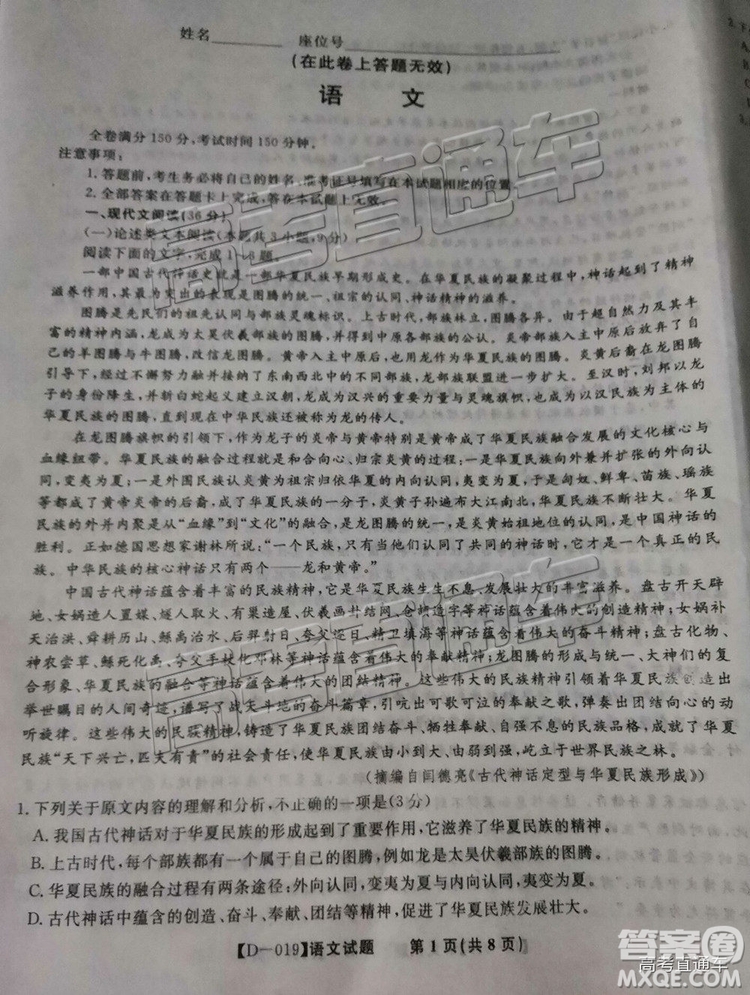 姓名 座位号
(在此卷上答题无效)
语 文
全卷满分150分,考试时间150分钟。
注意事项:
1.答题前,考生务必将自己的姓名、准考证号填写在本试题相应的位置。
2.全部答案在答题卡上完成,答在本试题上无效。
一、现代文阅读(36分)
(一)论述类文本阅读(本题共3小题,9分)
阅读下面的文字,完成1~3题。
一部中国古代神话史就是一部华夏民族早期形成史。在华夏民族的凝聚过程中,神话起到了精神
滋养作用,其最为突出的表现是图腾的统一、祖宗的认同、神话精神的滋养。
图腾是先民们的祖先认同与部族灵魂标识。上古时代,部族林立,图腾各异。由于超自然力及其丰
富的精神内涵,龙成为太昊伏羲部族的图腾,并得到中原各部族的公认。炎帝部族入主中原后放弃了自
己的羊图腾与牛图腾,改信龙图腾。黄帝入主中原后,也用龙作为华夏民族的图腾。炎黄后裔在龙图腾
引导下,经过不断努力融并接纳了东南西北中的不同部族,龙部族联盟进一步扩大。至汉时,刘邦以龙
子的身份降生,并斩白蛇起义建立汉朝,龙成为汉兴的重要力量与灵魂旗帜,也成为以汉民族为主体的
华夏民族的图腾,直到现在中华民族还被称为龙的传人。
在龙图腾旗帜的引领下,作为龙子的炎帝与黄帝特别是黄帝成了华夏民族融合发展的文化核心与
血缘纽带。华夏民族的融合过程就是和合向心、归宗炎黄的过程:一是华夏民族向外兼并扩张的外向认
同,变夷为夏;一是外围民族认炎黄为共祖的内向认同,夷变为夏,于是匈奴、鲜卑、苗族、瑶族
等都成了黄帝炎帝的后裔,成了华夏民族的一分子,炎黄子孙遍布大江南北,华夏民族不断壮大。华夏
民族的外并内聚过程是从“血缘”到“文化”的融合,是龙图腾的统一,是炎黄始祖地位的认同,是中国神话的
胜利。正如德国思想家谢林所说:“一个民族,只有当它能从自己的神话上判断自身,才成其为一个真正的民
族。中华民族的核心神话只有两个——龙和黄帝。”
中国古代神话蕴含着丰富的民族精神,它是华夏民族生生不息、发展壮大的力量源泉。盘古开天辟
地、女娲造人置媒、燧人取火、有巢造屋、伏羲画卦结网、仓颉造字等神话蕴含着伟大的创造精神;女娲补
天治洪、舜耕历山、大禹治水、后羿射日、夸父逐日、精卫填海等神话蕴含着伟大的奋斗精神;盘古化物、
神农尝草、鲧死化禹、夸父手杖化邓林等神话蕴含着伟大的奉献精神;龙图腾的形成、黄帝四面的复
合形象、华夏民族的融合等神话蕴含着伟大的团结精神。这些伟大的民族精神,滋养着华夏民族创造着
举世瞩目的奇迹,谱写着战天斗地的奋斗篇章,引吭出可歌可泣的奉献之歌,弹奏出团结向心的无
动旋律。这些伟大的民族精神,铸造了华夏民族团结奋斗、牺牲奉献、自强不息的民族品格,成就了华夏
民族“天下兴亡,匹夫有责”的社会责任感,使华夏民族由小到大、由弱到强,屹立于世界民族之林。
(摘编自闫德亮《古代神话定型与华夏民族形成》)
1.下列关于原文内容的理解和分析,不正确的一项是(3分)
A.我国古代神话对于华夏民族的形成起到了重要作用,它滋养了华夏民族的精神。
B.上古时代,每个部族都有一个属于自己的图腾,例如龙是太昊伏羲部族的图腾。
C.华夏民族的融合过程有两条途径:外向认同,变夷为夏与内向认同,夷变为夏。
D.古代神话中蕴含的创造、奋斗、奉献、团结精神,促进了华夏民族的发展壮大。
【D—019】语文试题 第1页(共8页)
高考直通车
高考直通车
答案卷
MXQE.COM
高考直通车